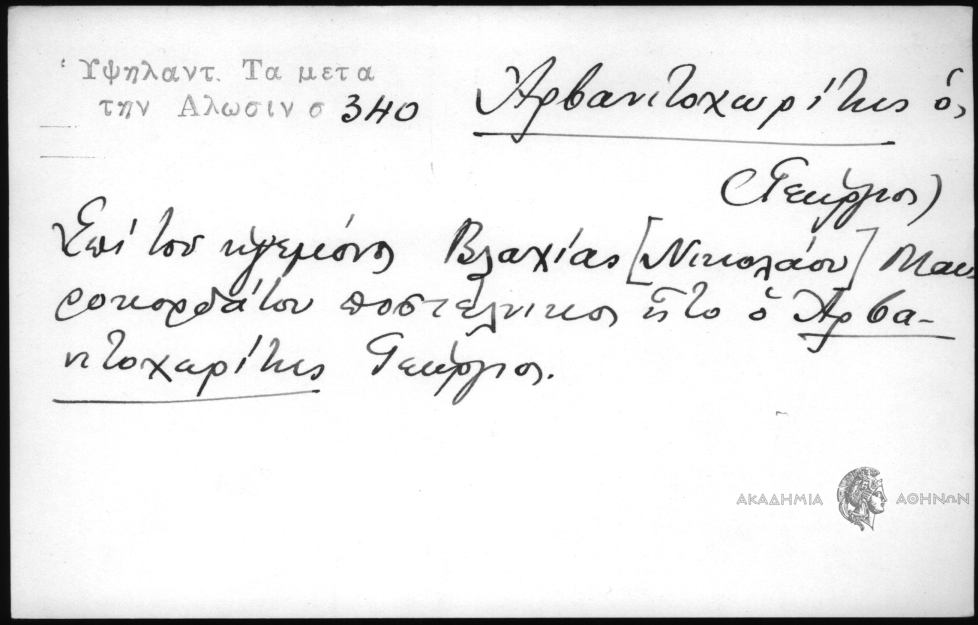 Ὑψηλαντ. Τα μετα
την Αλωσιν σ 340
Ἀρβανιτοχωρίτης ὁ,
(Γεώργιος)
Ἐπί του ηγεμόνος Βλαχίας [Νικολάου] Μαυ-
ροκορδάτου ποστέλνικος ἦτο ὁ Ἀρβα-
νιτοχωρίτης Γεώργιος.
ΑΚΑΔΗΜΙΑ ΑΘΗΝΩΝ